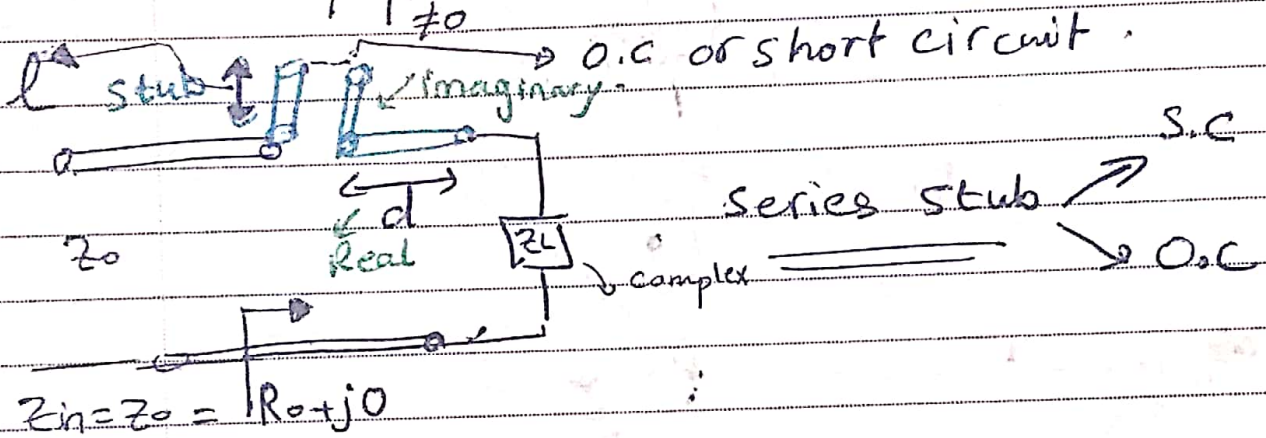 Z0
O.C or short circuit.
l stub imaginary.
S.C
d series stub
Z0 Real ZL O.C
complex
Zin = Z0 = R0+j0